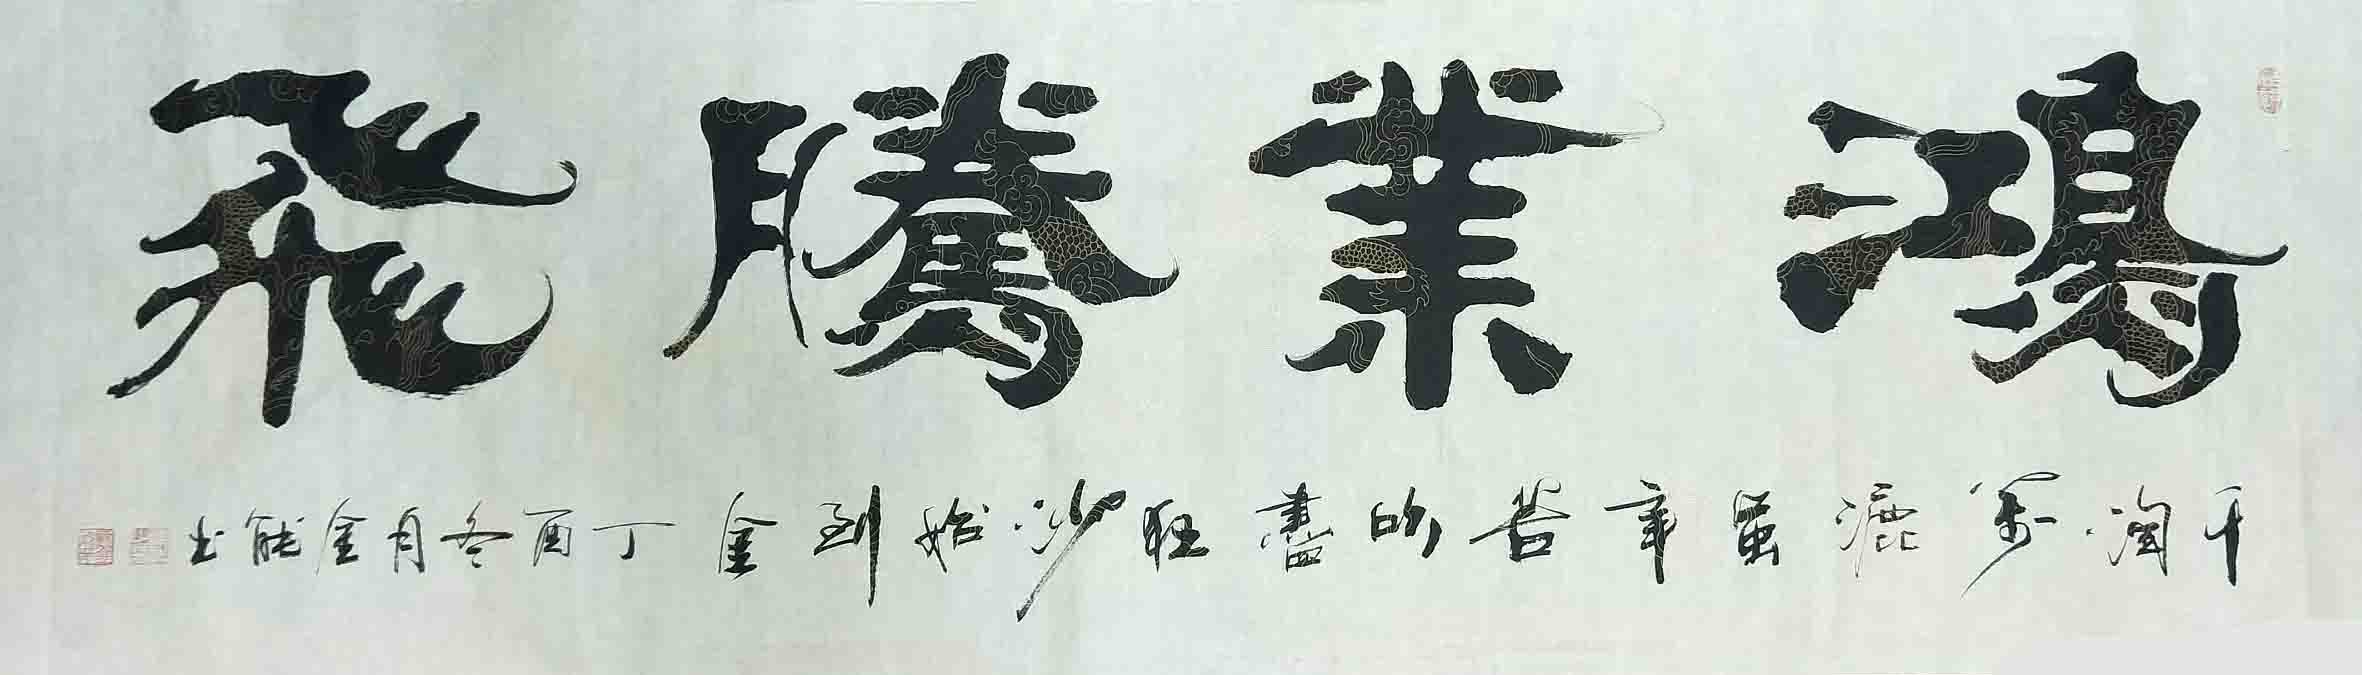 鴻業騰飛
千淘萬漉雖辛苦吹盡狂沙始到金丁酉冬月金能书